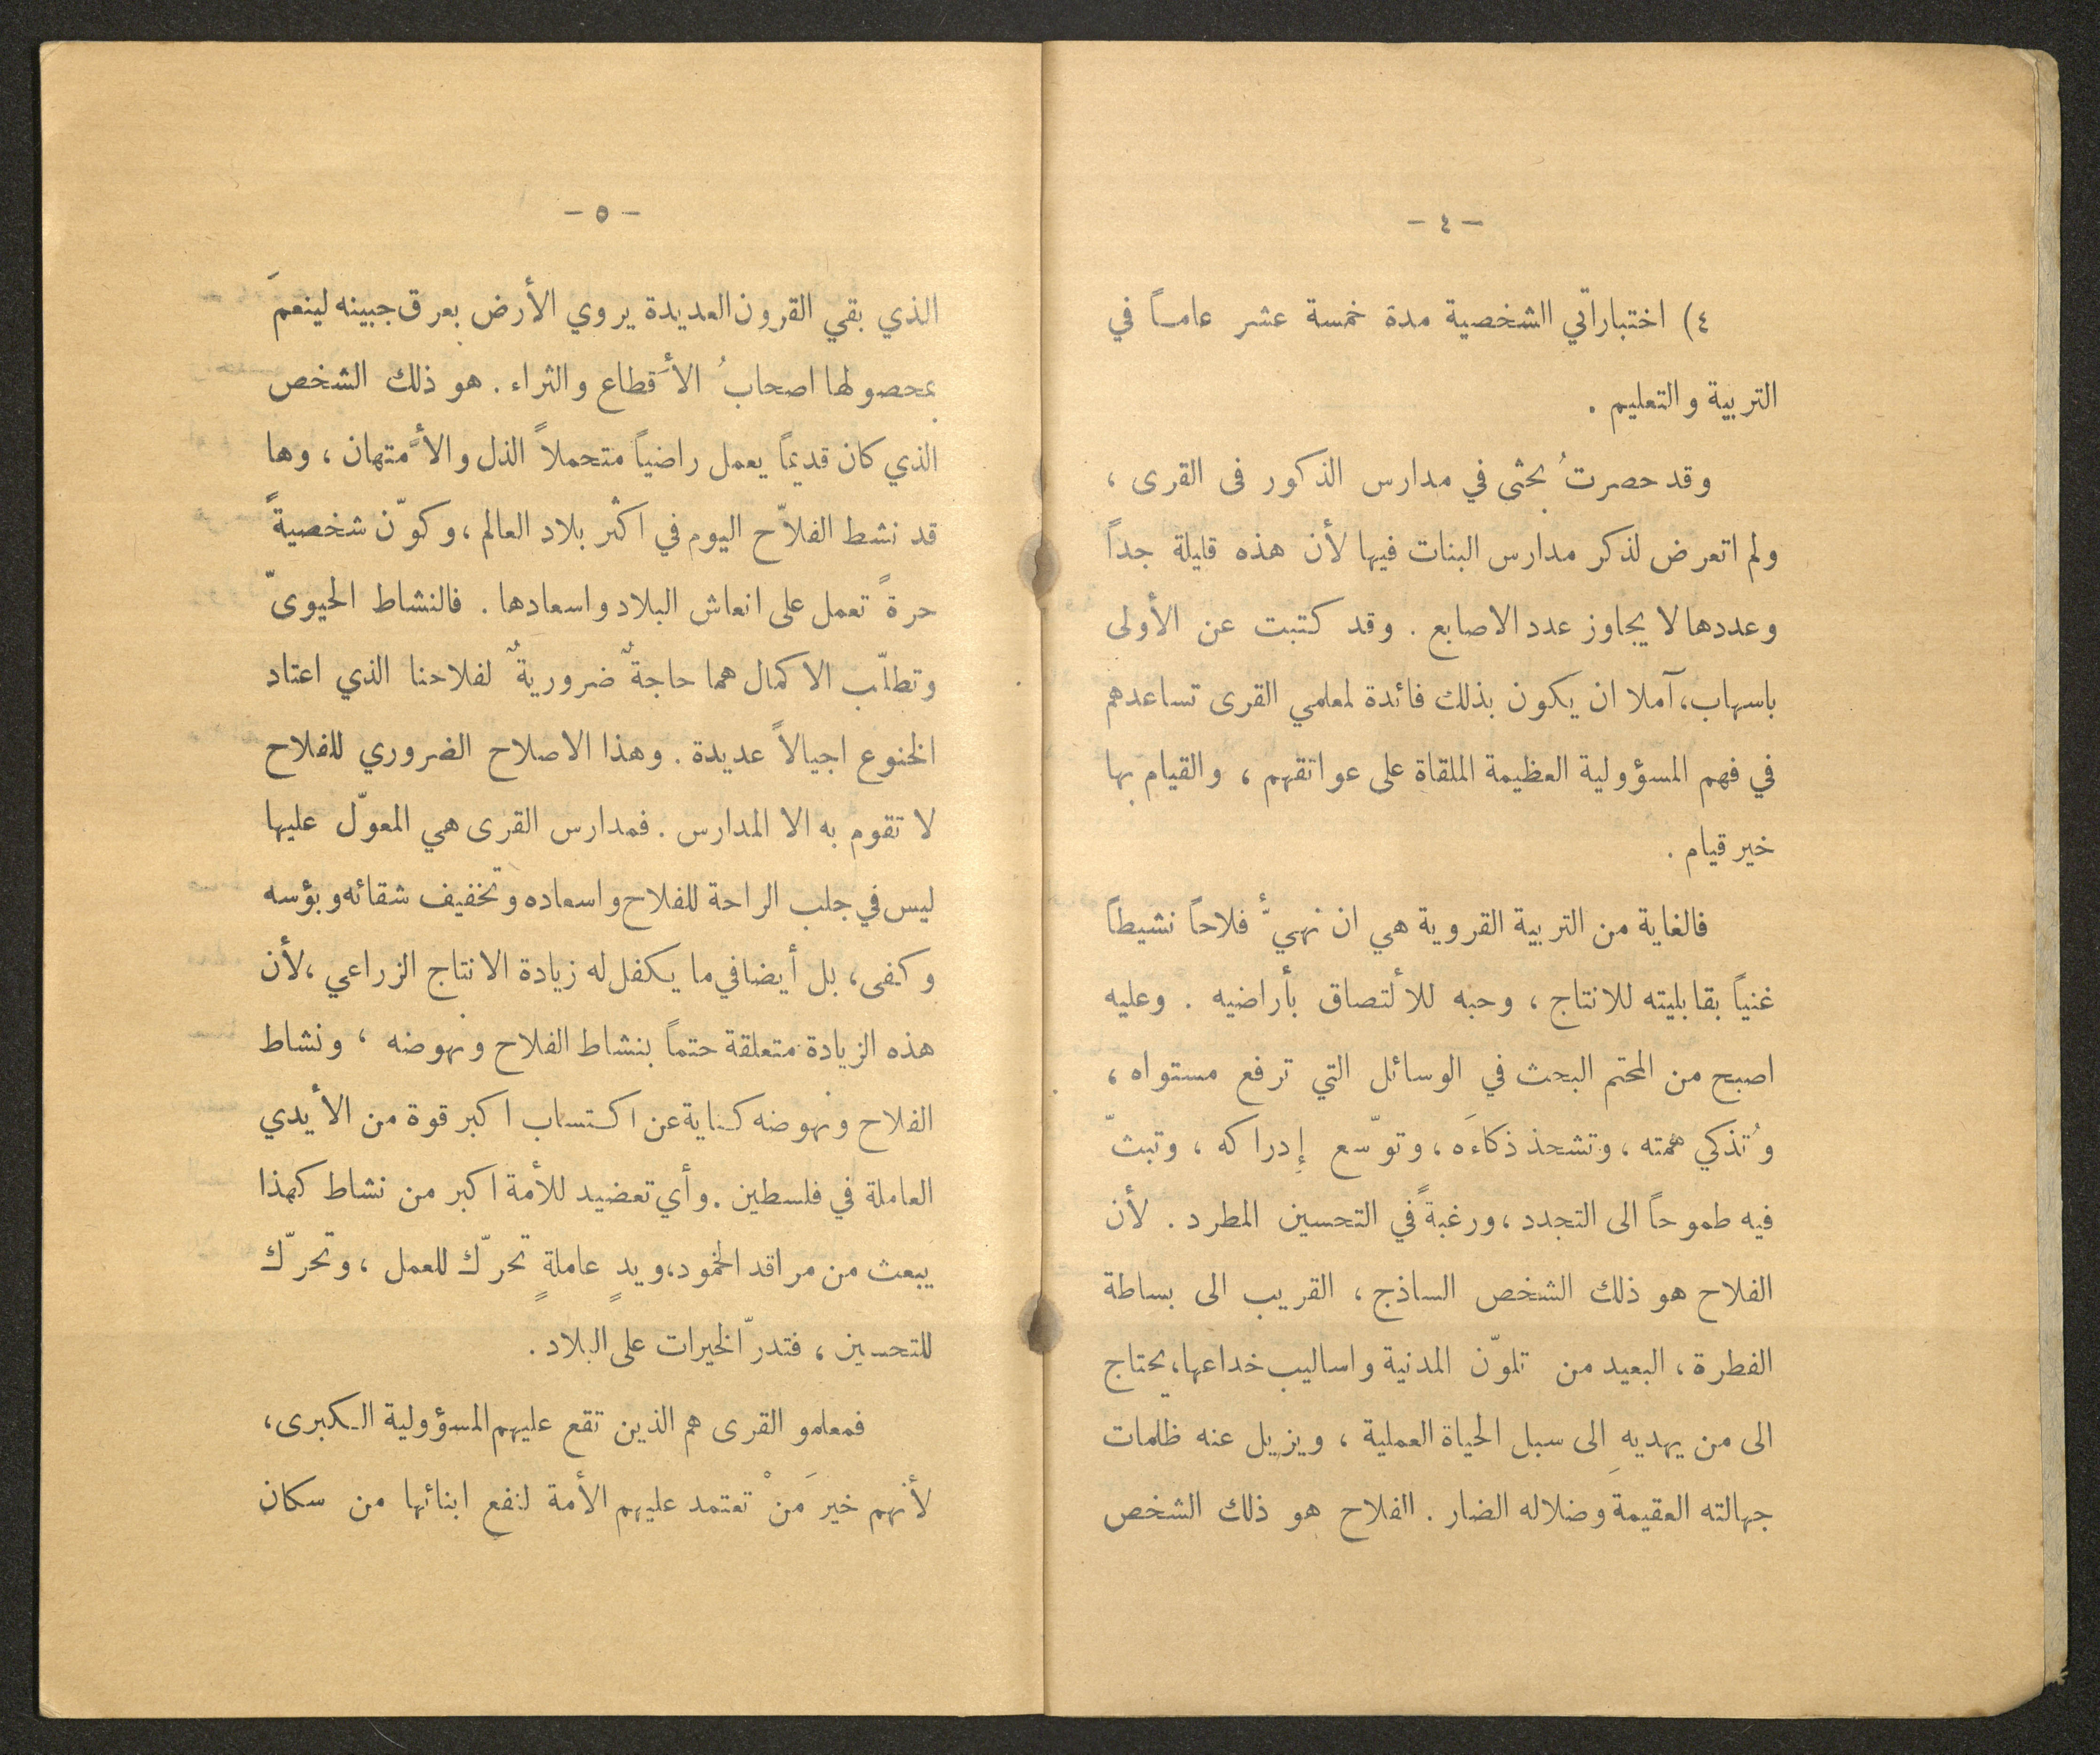 - ٤ -
٤) اختباراتي الشخصية مدة خمسة عشر عاماً في
التربية والتعليم .
وقد حصرتُ بحثى في مدارس الذكور فى القرى ،
ولم اتعرض لذكر مدارس البنات فيها لأن هذه قليلة جداً
وعددها لا يجاوز عدد الاصابع . وقد كتبت عن الأولى
باسهاب، آملا ان يكون بذلك فائدة لمعلمي القرى تساعدهم
في فهم المسؤولية العظيمة الملقاة على عواتقهم ، والقيام بها
خير قيام .
فالغاية من التربية القروية هي ان نهيّأ فلاحاً نشيطاً
غنياً بقابليته للانتاج ، وحبه للألتصاق بأراضيه . وعليه
اصبح من المحتم البحث في الوسائل التي ترفع مستواه ،
وُتذكي همته ، وتشحذ ذكاءَه ، وتوّسع إدراكه ، وتبثّ
فيه طموحاً الى التجدد ، ورغبةً في التحسين المطرد . لأن
الفلاح هو ذلك الشخص الساذج ، القريب الى بساطة
الفطرة ، البعيد من تلوّن المدنية واساليب خداعها، يحتاج
الى من يهديهِ الى سبل الحياة العملية ، ويزيل عنه ظلمات
جهالته العقيمة وضلاله الضار . الفلاح هو ذلك الشخص
- ٥ -
الذي بقي القرون العديدة يروي الأرض بعرق جبينه لينعمَ
بمحصولها اصحابُ الأَقطاع والثراء . هو ذلك الشخص
الذي كان قديماً يعمل راضياً متحملاً الذل والأَّمتهان ، وها
قد نشط الفلاّح اليوم في اكثر بلاد العالم ، وكوّن شخصيةً
حرةً تعمل على انعاش البلاد واسعادها . فالنشاط الحيوىّ
وتطلّب الاكمال هما حاجةٌ ضروريةٌ لفلاحنا الذي اعتاد
الخنوع اجيالاً عديدة . وهذا الاصلاح الضروري للفلاح
لا تقوم به الا المدارس . فمدارس القرى هي المعوّل عليها
ليس في جلب الراحة للفلاح واسعاده وتخفيف شقائه وبؤسه
وكفى، بل أيضا في ما يكفل له زيادة الانتاج الزراعي ،لأن
هذه الزيادة متعلقة حتماً بنشاط الفلاح ونهوضه ، ونشاط
الفلاح ونهوضه كناية عن اكتساب اكبر قوة من الأيدي
العاملة في فلسطين . وأي تعضيد للأمة اكبر من نشاط كهذا
يبعث من مراقد الخمود، ويدٍ عاملةٍ تحرّك للعمل ، وتحرّك
للتحسين ، فتدرّ الخيرات على البلاد .
فمعلمو القرى هم الذين تقع عليهم المسؤولية الكبرى،
لأنهم خير مَنْ تعتمد عليهم الأمة لنفع ابنائها من سكان